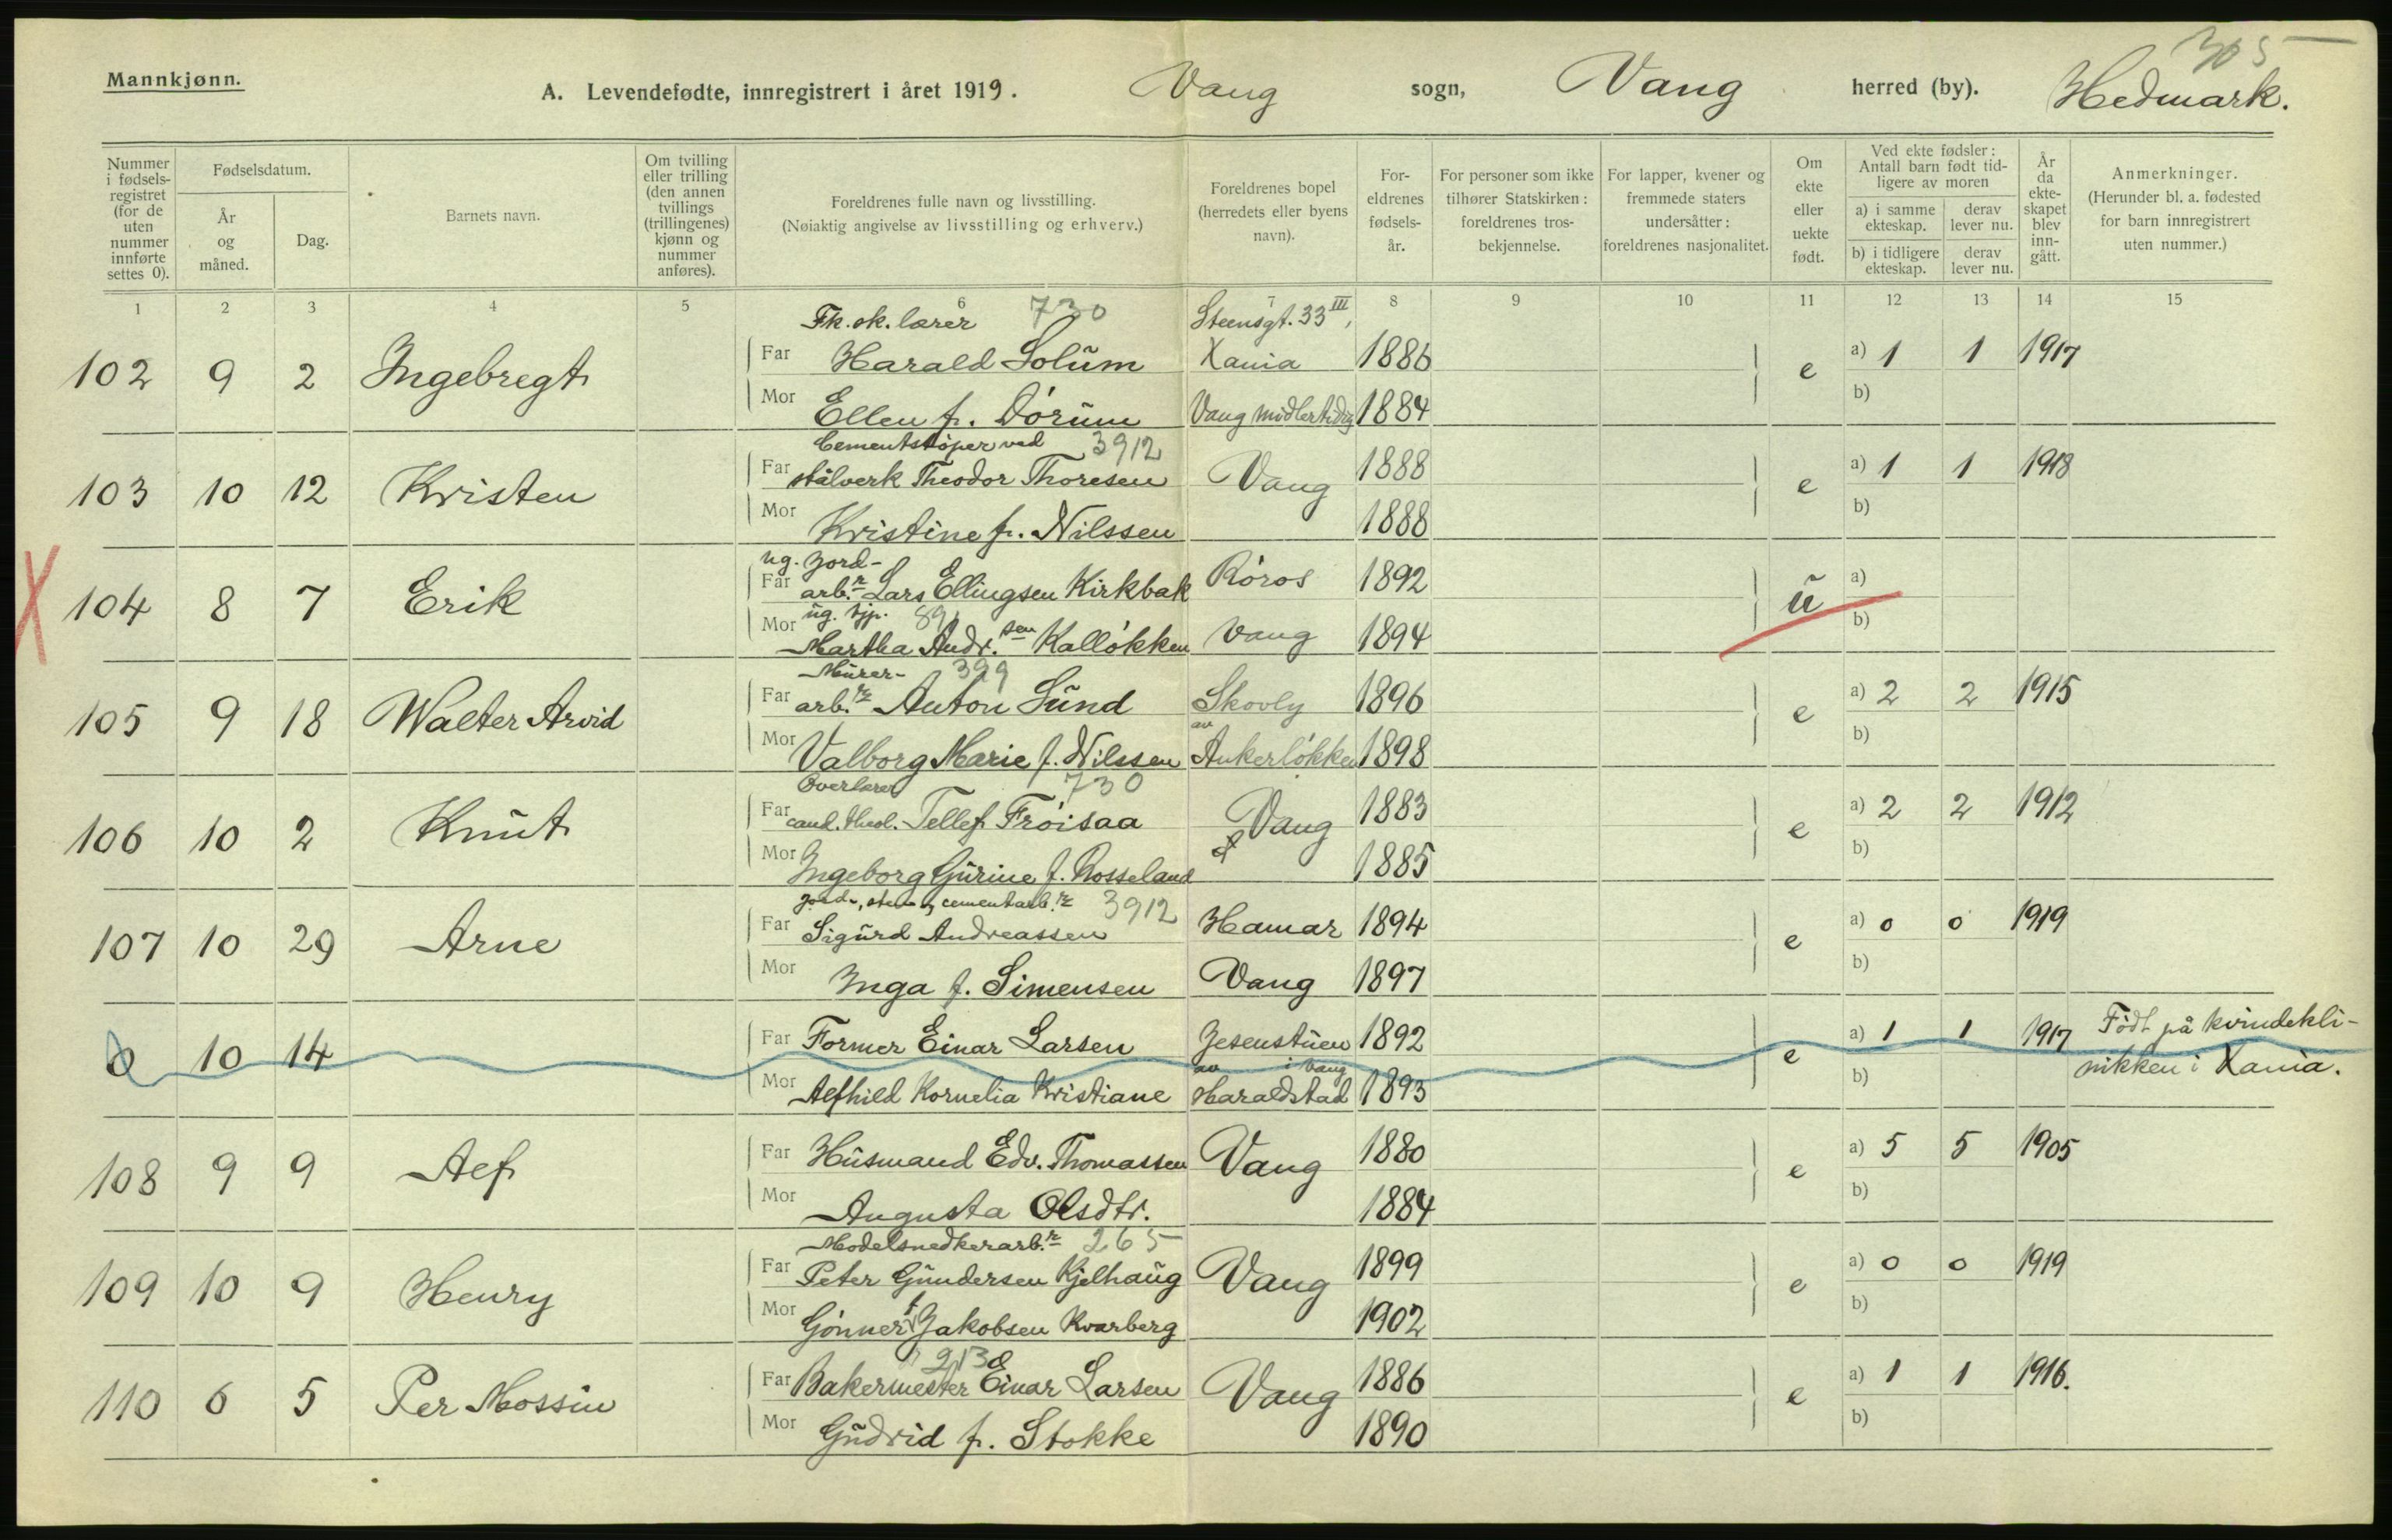 305
Mannkjønn.
A. Levendefødte, innregistrert i året 1919. Vang sogn, Vang herred (by). Hedmark.
Nummer i fødselsregistret (for de uten nummer innførte settes 0).
Fødselsdatum.
År og måned.
Dag.
Barnets navn.
Om tvilling eller trilling (den annen tvillings (trillingenes) kjønn og nummer anføres).
Foreldrenes fulle navn og livsstilling.
(Nøiaktig angivelse av livsstilling og erhverv.)
Foreldrenes bopel (herredets eller byens navn).
Foreldrenes fødselsår.
For personer som ikke tilhører Statskirken: foreldrenes trosbekjennelse.
For lapper, kvener og fremmede staters undersåtter: foreldrenes nasjonalitet.
Om ekte eller uekte født.
Ved ekte fødsler: Antall barn født tidligere av moren
a) i samme ekteskap. derav lever nu.
b) i tidligere ekteskap. derav lever nu.
År da ekteskapet blev inngått.
Anmerkninger.
(Herunder bl. a. fødested for barn innregistrert uten nummer.)
1 2 3 4 5 6 7 8 9 10 11 12 13 14 15
Fk. sk. lærer 730 Steensgt. 33 III,
102 9 2 Ingebregt Far Harald Solum Xania 1886 e a) 1 1 1917
Mor Ellen f. Dørum Vang midlertidig 1884 b)
Cementstøper ved 3912
103 10 12 Kristen Far stålverk Theodor Thoresen Vang 1888 e a) 1 1 1918
Mor Kristine f. Nilssen 1888 b)
ug. jord-
X 104 8 7 Erik Far arb.r Lars Ellingsen Kirkbak Røros 1892 u a)
ug. tjp. 891
Mor Martha Andr.sen Kalløkken Vang 1894 b)
Murer- 399
105 9 18 Walter Arvid Far arb.r Anton Lund Skovly 1896 e a) 2 2 1915
Mor Valborg Marie f. Nilssen av Ankerløkken 1898 b)
Overlærer 730
106 10 2 Knut Far cand. theol. Tellef Frøisaa Vang 1883 e a) 2 2 1912
Mor Ingeborg Gurine f. Rosseland 1885 b)
Jord-, sten- og cementarb.r 3912
107 10 29 Arne Far Sigurd Andreassen Hamar 1894 e a) 0 0 1919
Mor Inga f. Simensen Vang 1897 b)
0 10 14 Far Former Einar Larsen Jesenstuen 1892 e a) 1 1 1917 Født på kvindekli-
av i Vang
Mor Alfhild Kornelia Kristiane Haraldstad 1893 b) nikken i Xania.
108 9 9 Alf Far Husmand Edv. Thomassen Vang 1880 e a) 5 5 1905
Mor Augusta Olsdtr. 1884 b)
Modelsnedkerarb.r 265
109 10 9 Henry Far Peter Gundersen Kjelhaug Vang 1899 e a) 0 0 1919
Mor Gønner f. Jakobsen Kvarberg 1902 b)
213
110 6 5 Per Mossin Far Bakermester Einar Larsen Vang 1886 e a) 1 1 1916.
Mor Gudrid f. Stokke 1890 b)